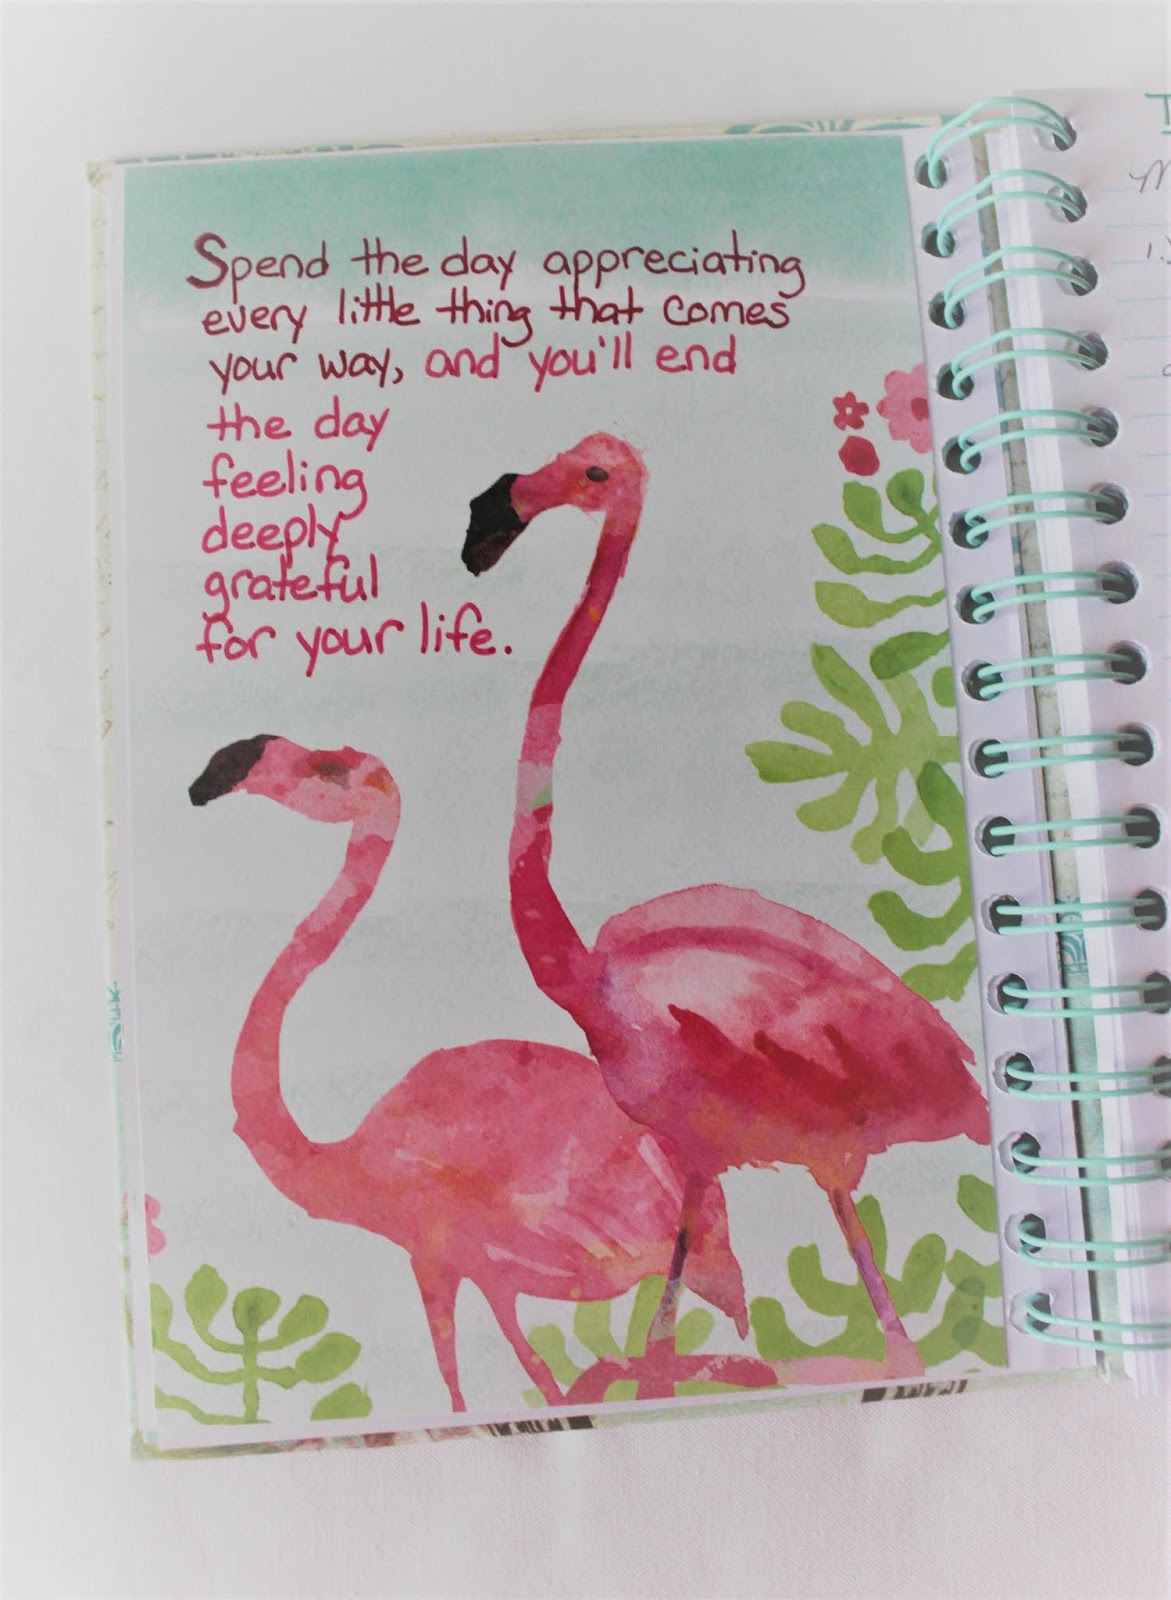 Spend the day appreciating
every little thing that comes
your way, and you'll end
the day
feeling
deeply
grateful
for your life.